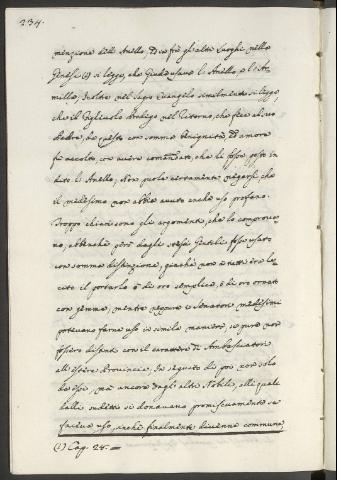 234.
menzione dell' Anello, ed in frà gli altri luoghi nella
Genesi (1) si legge, che Giuda usava l'Anello, e l'Ar-
milla; Inoltre nel Sagro Evangelo similmente si legge,
che il Figliuolo Prodigo nel ritorno, che fece al suo
Padre, da questo con somma benignità, ed amore
fù accolto, con avere comandato, che li fosse posto in
dito l'Anello, Non puole certamente negarsi, che
il medesimo non abbia avuto anche uso profano.
Troppo chiari sono gli argomenti, che lo comprova-
no, abbenchè però dagli stessi Gentili fosse usato
con somma distinzione, giachè non a tutti era le-
cito il portarlo ò di oro semplice, ò di oro ornato
con gemme, mentre neppure i Senatori medesimi
potevano farne uso in simile maniera, se pure non
fossero distinti con il carattere di Ambasciatori
all'estere Provincie, In seguito di poi non solo
da essi, mà ancora dagli altri Nobili, alli quali
dalli sudditi si donavano promiscuamente se
faceva uso, anche finalmente divenne commune,
(1) Cap. 28.